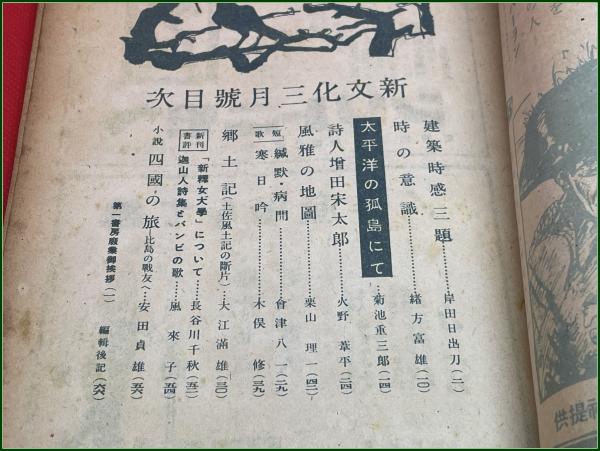 新文化三月號目次
建築時感三題………岸田日出刀(二)
時の意識………緒方富雄(一〇)
太平洋の孤島にて………菊池重三郎(一四)
詩人增田宋太郎………火野葦平(二四)
風雅の地圖………栗山理一(四二)
短歌 緘默・病間………會津八一(二九)
寒日吟………木俣修(三九)
鄕土記(土佐風土記の斷片)…大江滿雄(三〇)
新刊書評 「新釋女大學」について………長谷川千秋(五二)
迦山人詩集とバンビの歌………風來子(五四)
小說 四國の旅―比島の戰友へ―安田貞雄(五六)
第一書房廢業御挨拶(一) 編輯後記(六六)
提供